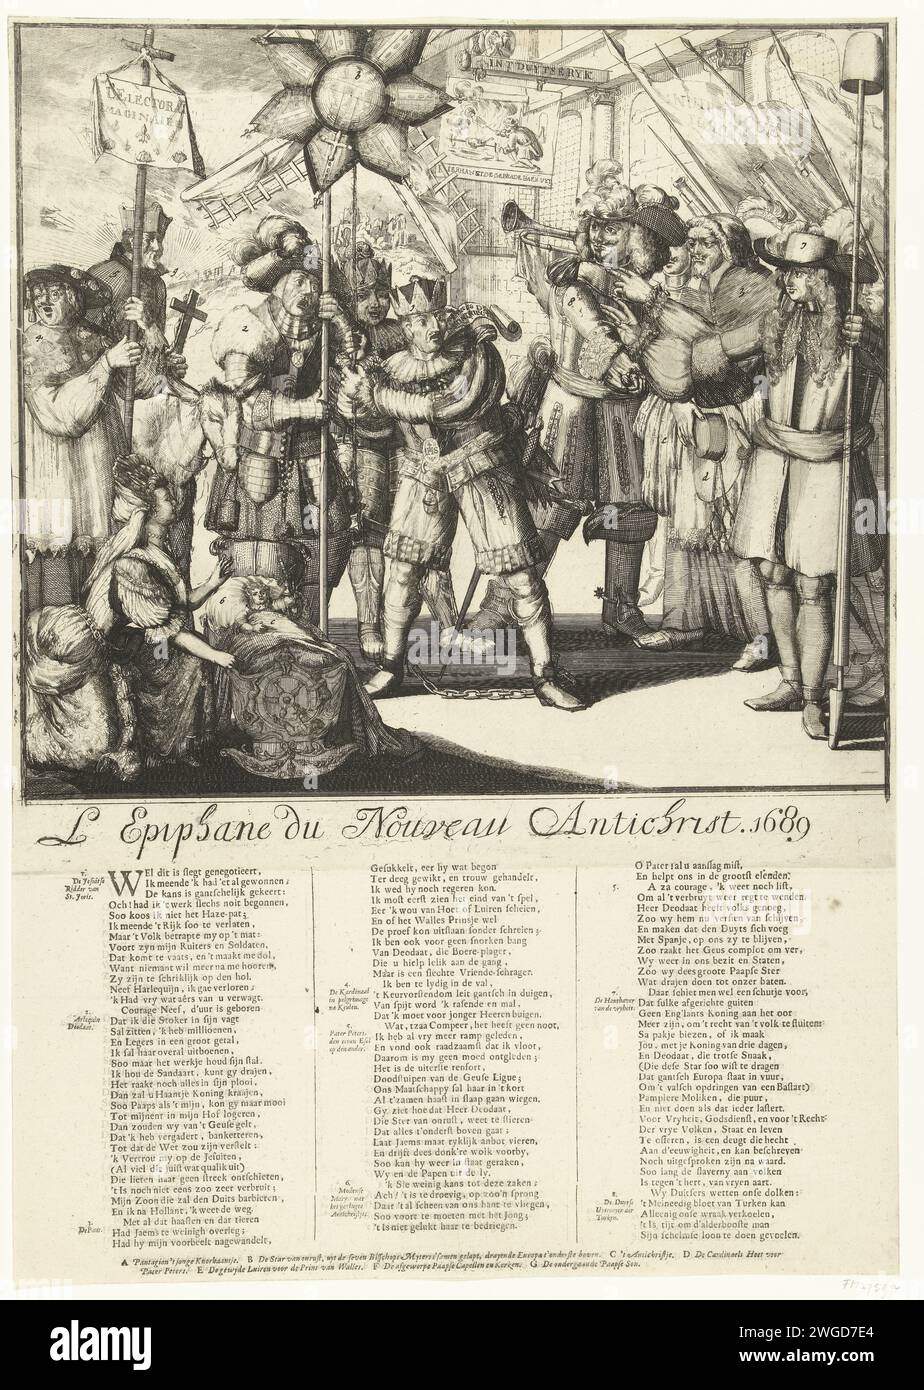 DELECTORA
MAGINAIRE
INT DUYTSE RYK
L Epiphane du Nouveau Antichrist. 1689
1.
De Jesuitse
Ridder van
St. Joris.
WEl dit is slegt genegotieert,
Ik meende 'k had 'et al gewonnen;
De kans is gantschelijk gekeert:
Och! had ik 't werk slechs noit begonnen,
Soo koos ik niet het Haze-pat;
Ik meende 't Rijk soo te verlaten,
Maar 't Volk betrapte my op 't mat:
Voort zyn mijn Ruiters en Soldaten,
Dat komt te vaats, en 't maakt me dol,
Want niemant wil meer na me hooren,
Zy zijn te schriklijk op den hol.
Neef Harlequijn, ik gae verloren;
'k Had vry wat aêrs van u verwagt.
2.
Arlequin
Deodaat.
Courage Neef, d'uur is geboren
Dat ik die Stoker in sijn vagt
Sal zitten, 'k heb millioenen,
En Legers in een groot getal,
Ik sal haat overal uitboenen,
Soo maar het werkje houd sijn stal.
Ik hou de Sandaart, kunt gy drajen,
Het raakt noch alles in sijn plooi,
Dan zal u Haantje Koning kraajen,
Soo Paaps als 't mijn, kon gy maar mooi
Tot mijnent in mijn Hof logeren,
Dan zouden wy van 't Geuse gelt,
Dat 'k heb vergadert, banketteren,
Tot dat de Wet zou zijn verstelt:
'k Vertrou my op de Jesuiten,
(Al viel die juist wat qualik uit)
Die lieten haar geen streek ontschieten,
't Is noch niet eens zoo zeer verbruit;
Mijn Zoon die zal den Duits barbieren,
En ik na Hollant, 'k weet de weg.
3.
De Paus.
Met al dat haasten en dat tieren
Had Jaems te weinigh overleg;
Had hy mijn voorbeelt nagewandelt,
Gesukkelt, eer hy wat begon
Ter deeg gewikt, en trouw gehandelt,
Ik wed hy noch regeren kon.
Ik most eerst zien het eind van 't spel,
Eer 'k wou van Hoet of Luiren scheien,
En of het Walles Prinsje wel
De proef kon uitstaan sonder schreien;
Ik ben ook voor geen snorken bang
Van Deodaat, die Boere-plager,
Die u hielp lelik aan de gang,
Maar is een slechte Vriende-schrager.
4.
De Kardinaal
in pelgrimage
na Keulen.
Ik ben te lydig in de val,
't Keurvorstendom leit gantsch in duigen,
Van spijt word 'k rasende en mal,
Dat 'k moet voor jonger Heeren buigen.
5.
Pater Peters,
den eenen Esel
op den ander.
Wat, tzaa Compeer, het heeft geen noot,
Ik heb al vry meer ramp geleden,
En vond ook raadzaamst dat ik vloot,
Daarom is my geen moed ontgleden;
Het is de uiterste renfort,
Doodstuipen van de Geuse Ligue;
Ons Maatschappy sal haar in 't kort
Al t'zamen haast in slaap gaan wiegen.
Gy ziet hoe dat Heer Deodaat,
Die Ster van onrust, weet te slieren
Dat alles 't onderst boven gaat;
Laat Jaems maar ryklijk anbot vieren,
En drijft dees donk're wolk voorby,
Soo kan hy weer in staat geraken,
Wy en de Papen uit de ly.
6.
'k Sie weinig kans tot deze zaken;
Ach! 't is te droevig, op zoo'n sprong
Daar 't al scheen van ons hant te vliegen,
Soo voort te moeten met het Jong;
't Is niet gelukt haar te bedriegen.
5.
O Pater sal u aanslag mist,
En helpt ons in de grootst elenden.
A za courage, 'k weet noch list,
Om al 't verbruyt weer regt te wenden.
Heer Deodaat heeft volks genoeg,
Zoo wy hem nu versien van schijven,
En maken dat den Duyts sich voeg
Met Spanje, op ons zy te blijven,
Zoo raakt het Geus complot om ver,
Wy weer in ons bezit en Staten,
Zoo wy dees groote Paapse Ster
Wat drajen doen tot onzer baten.
7.
De Hersteller
van de vryheit.
Daar schiet men wel een schutje voor,
Dat sulke afgerichte guiten
Geen Eng'lants Koning aan het oor
Meer zijn, om 't recht van 't volk te stuiten:
Sa pakje biezen, of ik maak
Jou, met je Koning van drie dagen,
En Deodaat, die trotse Snaak,
(Die dese Star soo wist te dragen
Dat gantsch Europa staat in vuur,
Om 't valsch opdringen van een Bastart)
Pampiere Moliken, die puur,
En niet doen als dat ieder lastert.
Voor Vryheit, Godsdienst, en voor 't Recht
Der vrye Volken, Staat en leven
Te offeren, is een deugt die hecht
Aan d'eeuwigheit, en kan beschreven
Noch uitgesproken zijn na waard.
Soo lang de slaverny aan volken
Is tegen 't hert, van vryen aart.
8.
De Duytse
Uytroeyer der
Turken.
Wy Duitsers wetten onse dolken:
't Meineedig bloet van Turken kan
Alleenig onse wraak verkoelen,
't Is tijt om d'alderbooste man
Sijn schelmse loon te doen gevoelen.
A Pantagien 't jonge Knorhaentje. B De Star van onrust, uit de seven Bisschops Myters t'samen gelapt, drayende Europa t'onderste boven. C 't Antichristje. D De Cardinaels Hoet voor
Pater Peters. E De gewyde Luiren voor de Prins van Walles. F De afgeworpe Paapse Capellen en Kerken. G De ondergaande Paapse Son.
alamy
Image ID: 2WGD7E4
www.alamy.com